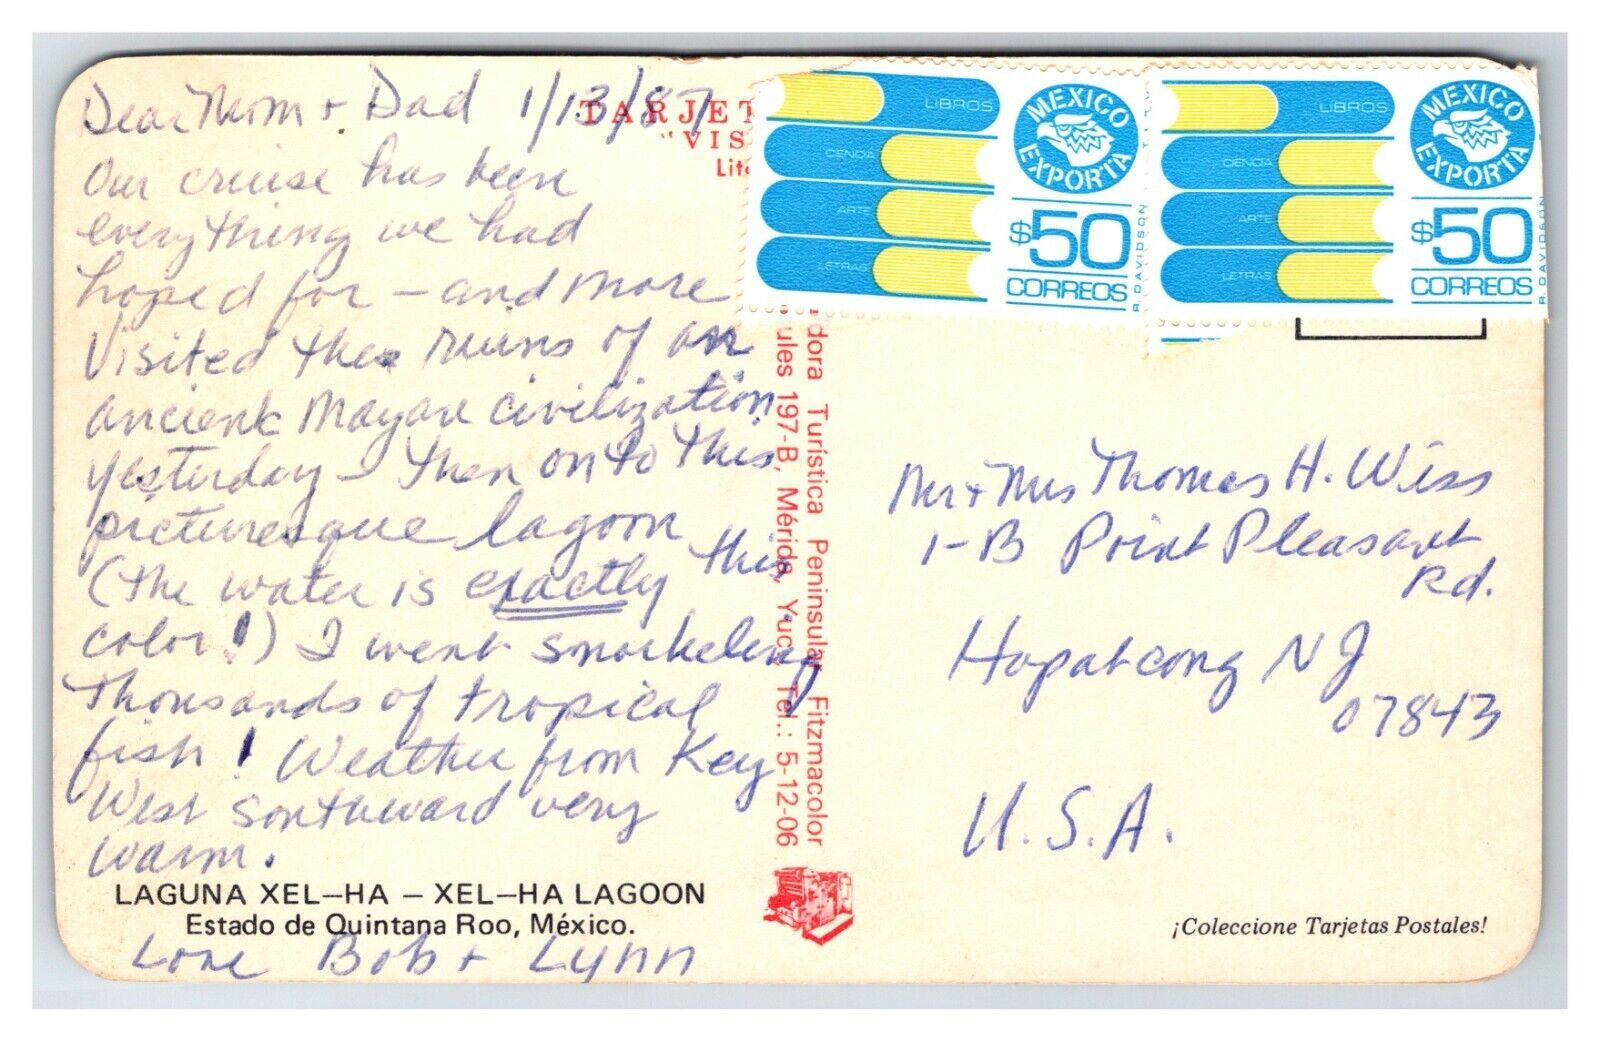 Dear Mom + Dad 1/13/87
Our cruise has been
everything we had
hoped for – and more
Visited the ruins of an
ancient Mayan civilization
yesterday – then on to this
picturesque lagoon
(the water is exactly this
color!) I went snorkeling
Thousands of tropical
fish! Weather from Key
West southward very
warm.
LAGUNA XEL–HA – XEL–HA LAGOON
Estado de Quintana Roo, México.
Love Bob + Lynn
TARJET
"VIS
Lito
dora Turística Peninsular Fitzmacolor
ules 197-B, Mérida, Yuc. Tel.: 5-12-06
LIBROS
CIENCIA
ARTE
LETRAS
MEXICO
EXPORTA
$50
CORREOS
R. DAVIDSON
LIBROS
CIENCIA
ARTE
LETRAS
MEXICO
EXPORTA
$50
CORREOS
R. DAVIDSON
Mr + Mrs Thomas H. Wiss
1-B Point Pleasant
Rd.
Hopatcong NJ
07843
U.S.A.
¡Coleccione Tarjetas Postales!